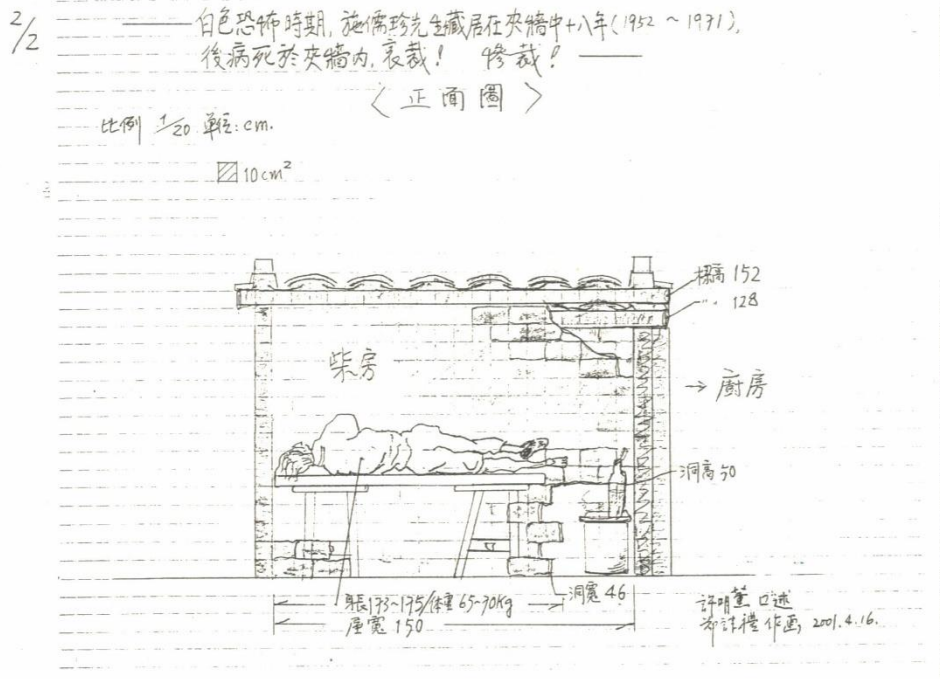 2/2
——— 白色恐怖時期,施儒珍先生藏居在夾牆中十八年(1952 ~ 1971),
後病死於夾牆内,哀哉! 慘哉! ———
〈 正面圖 〉
比例 1/20 單位:cm.
10cm²
樑高 152
〃 128
柴房
→ 廚房
洞高 50
身長173~175/体重65~70Kg
洞寬 46
屋寬 150
口述
作画 2001.4.16.